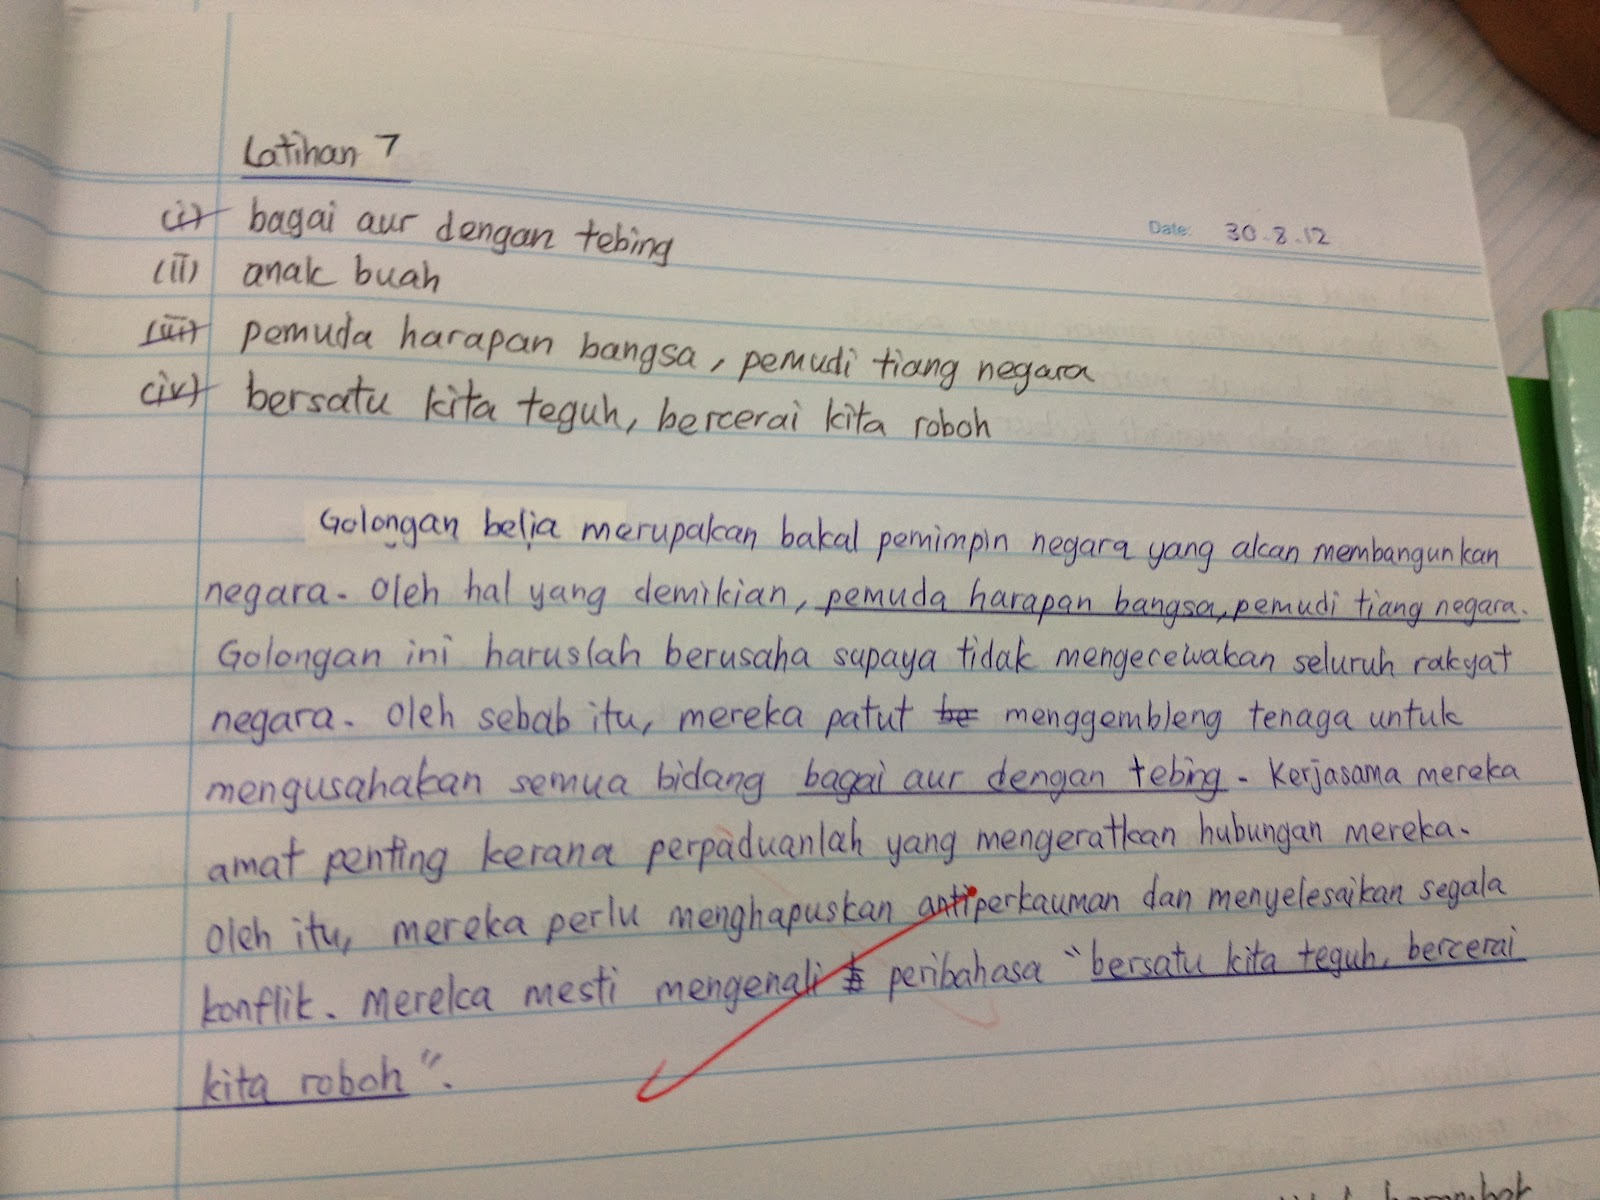 Latihan 7
Date: 30.8.12
(i) bagai aur dengan tebing
(ii) anak buah
(iii) pemuda harapan bangsa, pemudi tiang negara
(iv) bersatu kita teguh, bercerai kita roboh
Golongan belia merupakan bakal pemimpin negara yang akan membangunkan
negara. Oleh hal yang demikian, pemuda harapan bangsa, pemudi tiang negara.
Golongan ini haruslah berusaha supaya tidak mengecewakan seluruh rakyat
negara. Oleh sebab itu, mereka patut be menggembleng tenaga untuk
mengusahakan semua bidang bagai aur dengan tebing. Kerjasama mereka
amat penting kerana perpaduanlah yang mengeratkan hubungan mereka.
Oleh itu, mereka perlu menghapuskan antiperkauman dan menyelesaikan segala
konflik. Mereka mesti mengenali peribahasa "bersatu kita teguh, bercerai
kita roboh".